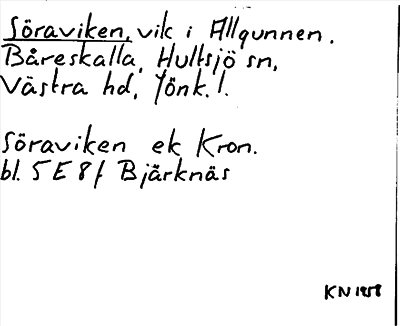 Söraviken, vik i Allgunnen.
Båreskalla, Hultsjö sn,
Västra hd, Jönk. l.
Söraviken ek Kron.
bl. 5 E 8 f Bjärknäs
KN 1958